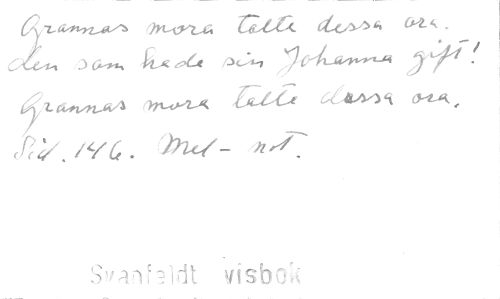 Grannas mora talte dessa ora.
den som hade sin Johanna gift!
Grannas mora talte dessa ora.
Sid. 146. Mel-not.
Svanfeldt visbok